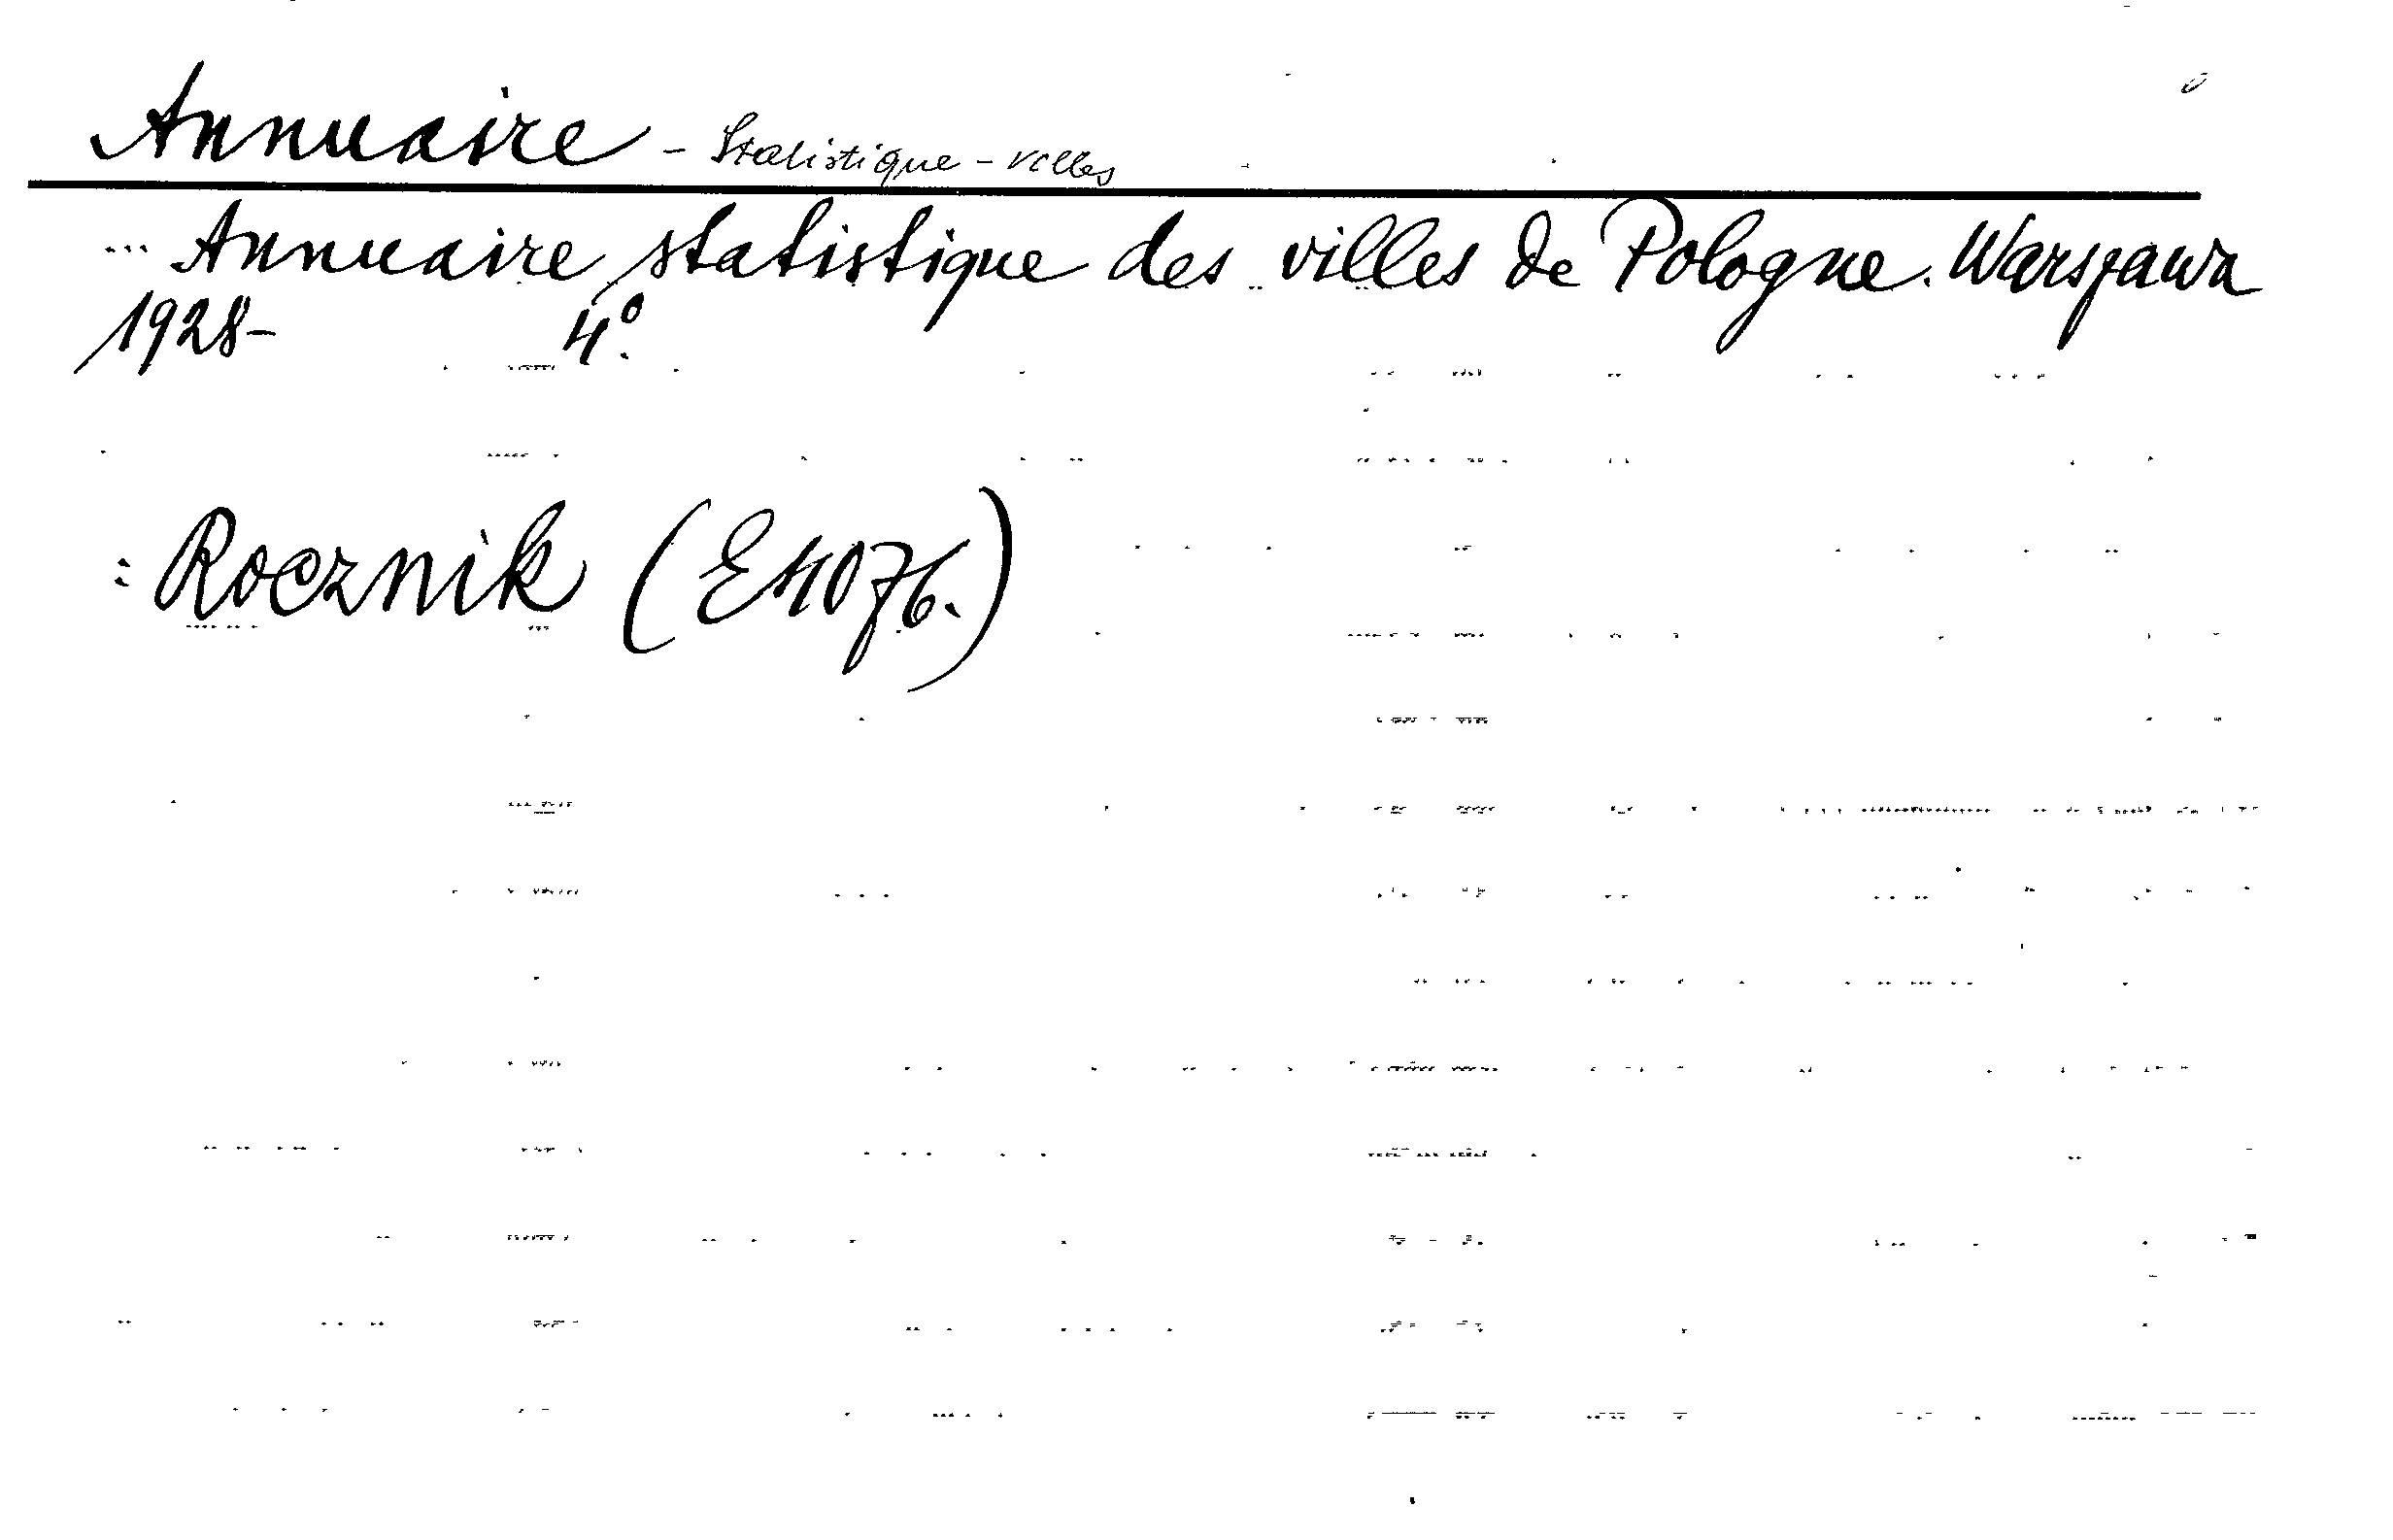 Annuaire - Statistique - villes
... Annuaire statistique des villes de Pologne. Warszawa
1928- 4°.
: Rocznik (E4076.)